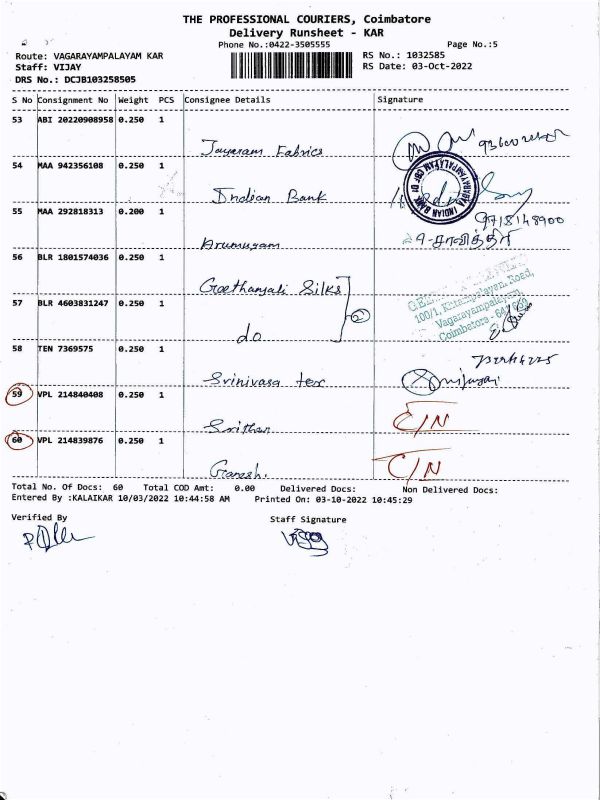 THE PROFESSIONAL COURIERS, Coimbatore
Delivery Runsheet - KAR
Phone No.:0422-3505555
Page No.:5
Route: VAGARAYAMPALAYAM KAR
RS No.: 1032585
Staff: VIJAY
RS Date: 03-Oct-2022
DRS No.: DCJB103258505
S No Consignment No Weight PCS Consignee Details Signature
53 ABI 20220908958 0.250 1
Jayaram Fabrics
54 MAA 942356108 0.250 1
Indian Bank
55 MAA 292818313 0.200 1
9718148900
Arumugam
56 BLR 1801574036 0.250 1
Geethanjali Silks
100/1, Kittampalayam Road,
Vagarayampalayam,
Coimbatore - 641 659
57 BLR 4603831247 0.250 1
2
do
58 TEN 7369575 0.250 1
Srinivasa tex
59 VPL 214840408 0.250 1
C/N
Srithar
60 VPL 214839876 0.250 1
C/N
Ganesh.
Total No. Of Docs: 60 Total COD Amt: 0.00 Delivered Docs: Non Delivered Docs:
Entered By :KALAIKAR 10/03/2022 10:44:58 AM Printed On: 03-10-2022 10:45:29
Verified By Staff Signature